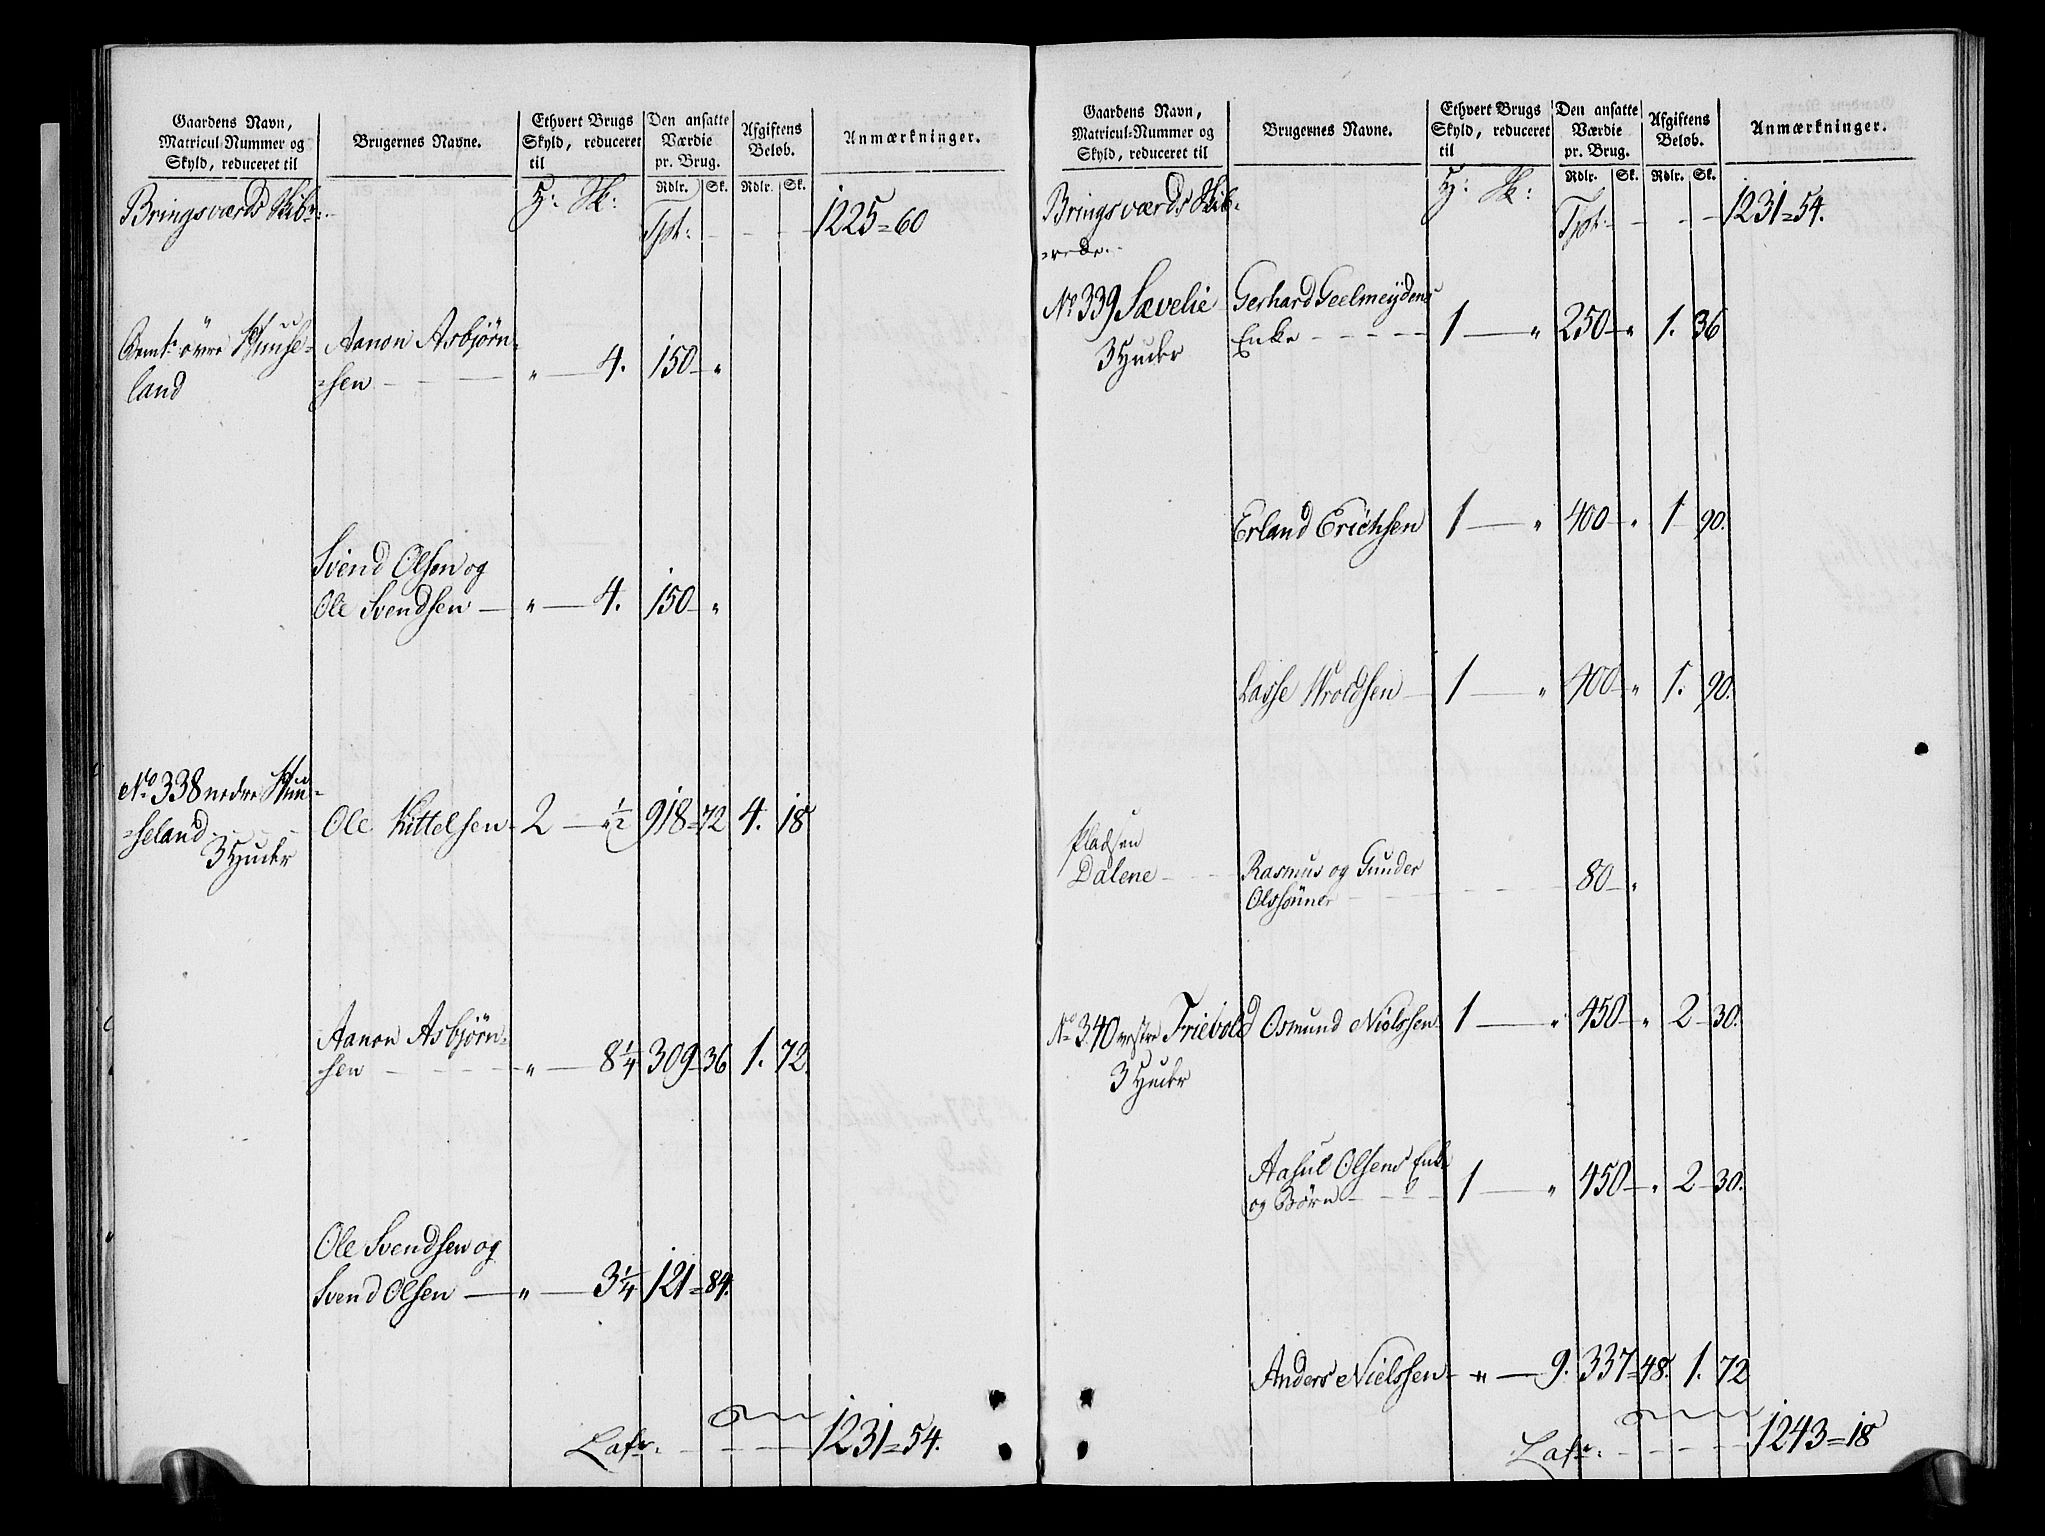 Gaardens Navn,
Matricul-Nummer og
Skyld, reduceret til
Brugernes Navne.
Ethvert Brugs
Skyld, reduceret
til
Den ansatte
Værdie
pr. Brug.
Afgiftens
Beløb.
Anmærkninger.
Rdlr. Sk. Rdlr. Sk.
Bringsværds Skibr:
H: Sk:
Tpt: 1225=60
øvre Huuse-
land
Aanon Asbjørn-
sen " 4. 150 "
Svend Olsen og
Ole Svendsen " 4. 150 "
No 338 nedre Huu-
seland
3 Huder
Ole Kittelsen 2 1/2 918=72 4. 18
Aanon Asbjørn-
sen " 8 1/4 309 36 1. 72.
Ole Svendsen og
Svend Olsen " 3 1/4 121=84.
Lafr. 1231=54.
Gaardens Navn,
Matricul-Nummer og
Skyld, reduceret til
Brugernes Navne.
Ethvert Brugs
Skyld, reduceret
til
Den ansatte
Værdie
pr. Brug.
Afgiftens
Beløb.
Anmærkninger.
Rdlr. Sk. Rdlr. Sk.
Bringsværds Skib-
rede.
H: Sk:
Tpt: 1231=54.
No 339 Sævelie
3 Huder
Gerhard Geelmeydens
Enke 1 " 250 " 1. 36
Erland Erichsen 1 " 400 " 1 90.
Lasse Wroldsen 1 " 400 " 1. 90.
Pladsen
Dalene
Rasmus og Gunder
Olssønner 80 "
No 340 vestre Friebold Osmund Nielssen 1 " 450 " 2 30.
3 Huder
Aasul Olsens Enke
og Børn 1 " 450 " 2 30.
Anders Nielssen " 9. 337=48. 1. 72
Lafr. 1243=18